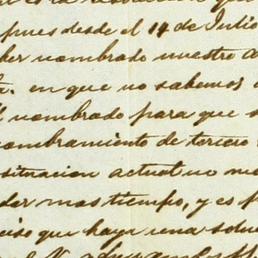 pues desde el 14 de Julio
der nombrado nuestro a
a. en que no sabemos
l nombrado para que s
nombramiento de tercero
situacion actual no me
der mas tiempo, y es p
ciso que haya una solu